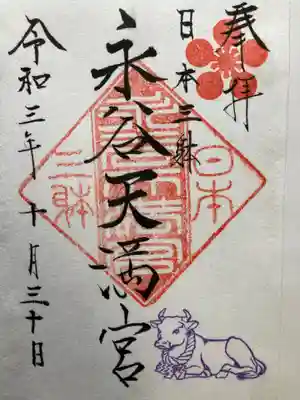 奉拝
日本三躰
永谷天満宮
令和三年十月三十日
日本
三躰